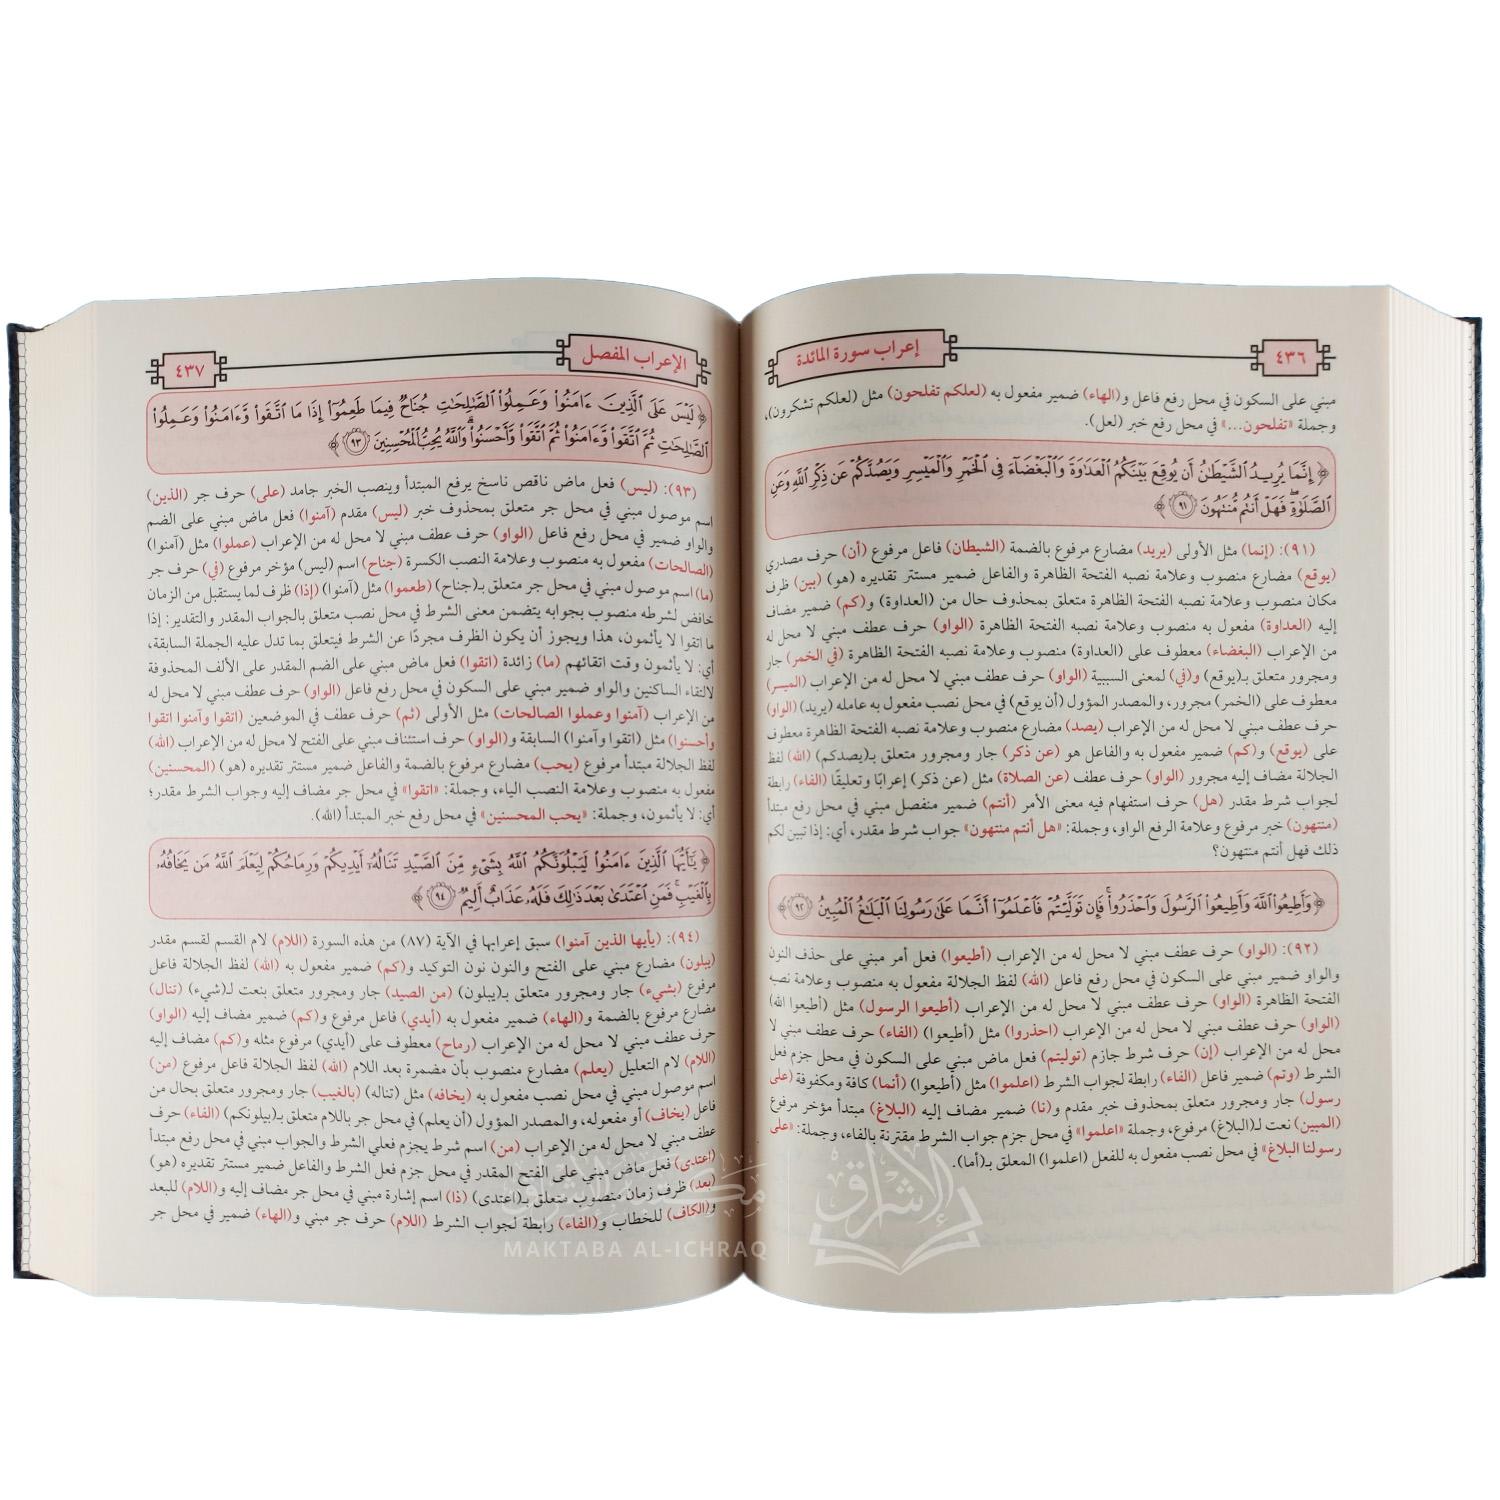 ٤٣٦
إعراب سورة المائدة
مبني على السكون في محل رفع فاعل و(الهاء) ضمير مفعول به (لعلكم تفلحون) مثل (لعلكم تشكرون)،
وجملة «تفلحون...» في محل رفع خبر (لعل).
﴿ إِنَّمَا يُرِيدُ ٱلشَّيْطَٰنُ أَن يُوقِعَ بَيْنَكُمُ ٱلْعَدَٰوَةَ وَٱلْبَغْضَآءَ فِى ٱلْخَمْرِ وَٱلْمَيْسِرِ وَيَصُدَّكُمْ عَن ذِكْرِ ٱللَّهِ وَعَنِ
ٱلصَّلَوٰةِ ۖ فَهَلْ أَنتُم مُّنتَهُونَ ٩١ ﴾
(٩١): (إنما) مثل الأولى (يريد) مضارع مرفوع بالضمة (الشيطان) فاعل مرفوع (أن) حرف مصدري
(يوقع) مضارع منصوب وعلامة نصبه الفتحة الظاهرة والفاعل ضمير مستتر تقديره (هو) (بين) ظرف
مكان منصوب وعلامة نصبه الفتحة الظاهرة متعلق بمحذوف حال من (العداوة) و(كم) ضمير مضاف
إليه (العداوة) مفعول به منصوب وعلامة نصبه الفتحة الظاهرة (الواو) حرف عطف مبني لا محل له
من الإعراب (البغضاء) معطوف على (العداوة) منصوب وعلامة نصبه الفتحة الظاهرة (في الخمر) جار
ومجرور متعلق بـ(يوقع) و(في) لمعنى السببية (الواو) حرف عطف مبني لا محل له من الإعراب (الميسر)
معطوف على (الخمر) مجرور، والمصدر المؤول (أن يوقع) في محل نصب مفعول به عامله (يريد) (الواو)
حرف عطف مبني لا محل له من الإعراب (يصد) مضارع منصوب وعلامة نصبه الفتحة الظاهرة معطوف
على (يوقع) و(كم) ضمير مفعول به والفاعل هو (عن ذكر) جار ومجرور متعلق بـ(يصدكم) (الله) لفظ
الجلالة مضاف إليه مجرور (الواو) حرف عطف (عن الصلاة) مثل (عن ذكر) إعرابًا وتعليقًا (الفاء) رابطة
لجواب شرط مقدر (هل) حرف استفهام فيه معنى الأمر (أنتم) ضمير منفصل مبني في محل رفع مبتدأ
(منتهون) خبر مرفوع وعلامة الرفع الواو، وجملة: «هل أنتم منتهون» جواب شرط مقدر، أي: إذا تبين لكم
ذلك فهل أنتم منتهون؟
﴿ وَأَطِيعُوا۟ ٱللَّهَ وَأَطِيعُوا۟ ٱلرَّسُولَ وَٱحْذَرُوا۟ ۚ فَإِن تَوَلَّيْتُمْ فَٱعْلَمُوٓا۟ أَنَّمَا عَلَىٰ رَسُولِنَا ٱلْبَلَٰغُ ٱلْمُبِينُ ٩٢ ﴾
(٩٢): (الواو) حرف عطف مبني لا محل له من الإعراب (أطيعوا) فعل أمر مبني على حذف النون
والواو ضمير مبني على السكون في محل رفع فاعل (الله) لفظ الجلالة مفعول به منصوب وعلامة نصبه
الفتحة الظاهرة (الواو) حرف عطف مبني لا محل له من الإعراب (أطيعوا الرسول) مثل (أطيعوا الله)
(الواو) حرف عطف مبني لا محل له من الإعراب (احذروا) مثل (أطيعوا) (الفاء) حرف عطف مبني لا
محل له من الإعراب (إن) حرف شرط جازم (توليتم) فعل ماض مبني على السكون في محل جزم فعل
الشرط (وتم) ضمير فاعل (الفاء) رابطة لجواب الشرط (اعلموا) مثل (أطيعوا) (أنما) كافة ومكفوفة (على
رسول) جار ومجرور متعلق بمحذوف خبر مقدم و(نا) ضمير مضاف إليه (البلاغ) مبتدأ مؤخر مرفوع
(المبين) نعت لـ(البلاغ) مرفوع، وجملة «اعلموا» في محل جزم جواب الشرط مقترنة بالفاء، وجملة: «على
رسولنا البلاغ» في محل نصب مفعول به للفعل (اعلموا) المعلق بـ(أما).
الإعراب المفصل
٤٣٧
﴿ لَيْسَ عَلَى ٱلَّذِينَ ءَامَنُوا۟ وَعَمِلُوا۟ ٱلصَّٰلِحَٰتِ جُنَاحٌ فِيمَا طَعِمُوٓا۟ إِذَا مَا ٱتَّقَوا۟ وَّءَامَنُوا۟ وَعَمِلُوا۟
ٱلصَّٰلِحَٰتِ ثُمَّ ٱتَّقَوا۟ وَّءَامَنُوا۟ ثُمَّ ٱتَّقَوا۟ وَّأَحْسَنُوا۟ ۗ وَٱللَّهُ يُحِبُّ ٱلْمُحْسِنِينَ ٩٣ ﴾
(٩٣): (ليس) فعل ماض ناقص ناسخ يرفع المبتدأ وينصب الخبر جامد (على) حرف جر (الذين)
اسم موصول مبني في محل جر متعلق بمحذوف خبر (ليس) مقدم (آمنوا) فعل ماض مبني على الضم
والواو ضمير في محل رفع فاعل (الواو) حرف عطف مبني لا محل له من الإعراب (عملوا) مثل (آمنوا)
(الصالحات) مفعول به منصوب وعلامة النصب الكسرة (جناح) اسم (ليس) مؤخر مرفوع (في) حرف جر
(ما) اسم موصول مبني في محل جر متعلق بـ(جناح) (طعموا) مثل (آمنوا) (إذا) ظرف لما يستقبل من الزمان
خافض لشرطه منصوب بجوابه يتضمن معنى الشرط في محل نصب متعلق بالجواب المقدر والتقدير: إذا
ما اتقوا لا يأثمون، هذا ويجوز أن يكون الظرف مجردًا عن الشرط فيتعلق بما تدل عليه الجملة السابقة،
أي: لا يأثمون وقت اتقائهم (ما) زائدة (اتقوا) فعل ماض مبني على الضم المقدر على الألف المحذوفة
لالتقاء الساكنين والواو ضمير مبني على السكون في محل رفع فاعل (الواو) حرف عطف مبني لا محل له
من الإعراب (آمنوا وعملوا الصالحات) مثل الأولى (ثم) حرف عطف في الموضعين (اتقوا وآمنوا اتقوا
وأحسنوا) مثل (اتقوا وآمنوا) السابقة و(الواو) حرف استئناف مبني على الفتح لا محل له من الإعراب (الله)
لفظ الجلالة مبتدأ مرفوع (يحب) مضارع مرفوع بالضمة والفاعل ضمير مستتر تقديره (هو) (المحسنين)
مفعول به منصوب وعلامة النصب الياء، وجملة: «اتقوا» في محل جر مضاف إليه وجواب الشرط مقدر؛
أي: لا يأثمون، وجملة: «يحب المحسنين» في محل رفع خبر المبتدأ (الله).
﴿ يَٰٓأَيُّهَا ٱلَّذِينَ ءَامَنُوا۟ لَيَبْلُوَنَّكُمُ ٱللَّهُ بِشَىْءٍ مِّنَ ٱلصَّيْدِ تَنَالُهُۥٓ أَيْدِيكُمْ وَرِمَاحُكُمْ لِيَعْلَمَ ٱللَّهُ مَن يَخَافُهُۥ
بِٱلْغَيْبِ ۚ فَمَنِ ٱعْتَدَىٰ بَعْدَ ذَٰلِكَ فَلَهُۥ عَذَابٌ أَلِيمٌ ٩٤ ﴾
(٩٤): (يأيها الذين آمنوا) سبق إعرابها في الآية (٨٧) من هذه السورة (اللام) لام القسم لقسم مقدر
(يبلون) مضارع مبني على الفتح والنون نون التوكيد و(كم) ضمير مفعول به (الله) لفظ الجلالة فاعل
مرفوع (بشيء) جار ومجرور متعلق بـ(يبلون) (من الصيد) جار ومجرور متعلق بنعت لـ(شيء) (تنال)
مضارع مرفوع بالضمة و(الهاء) ضمير مفعول به (أيدي) فاعل مرفوع و(كم) ضمير مضاف إليه (الواو)
حرف عطف مبني لا محل له من الإعراب (رماح) معطوف على (أيدي) مرفوع مثله و(كم) مضاف إليه
(اللام) لام التعليل (يعلم) مضارع منصوب بأن مضمرة بعد اللام (الله) لفظ الجلالة فاعل مرفوع (من)
اسم موصول مبني في محل نصب مفعول به (يخافه) مثل (تناله) (بالغيب) جار ومجرور متعلق بحال من
فاعل (يخاف) أو مفعوله، والمصدر المؤول (أن يعلم) في محل جر باللام متعلق بـ(يبلونكم) (الفاء) حرف
عطف مبني لا محل له من الإعراب (من) اسم شرط يجزم فعلي الشرط والجواب مبني في محل رفع مبتدأ
(اعتدى) فعل ماض مبني على الفتح المقدر في محل جزم فعل الشرط والفاعل ضمير مستتر تقديره (هو)
(بعد) ظرف زمان منصوب متعلق بـ(اعتدى) (ذا) اسم إشارة مبني في محل جر مضاف إليه و(اللام) للبعد
و(الكاف) للخطاب و(الفاء) رابطة لجواب الشرط (اللام) حرف جر مبني و(الهاء) ضمير في محل جر
مكتبة الإشراق
MAKTABA AL-ICHRAQ
الإشراق